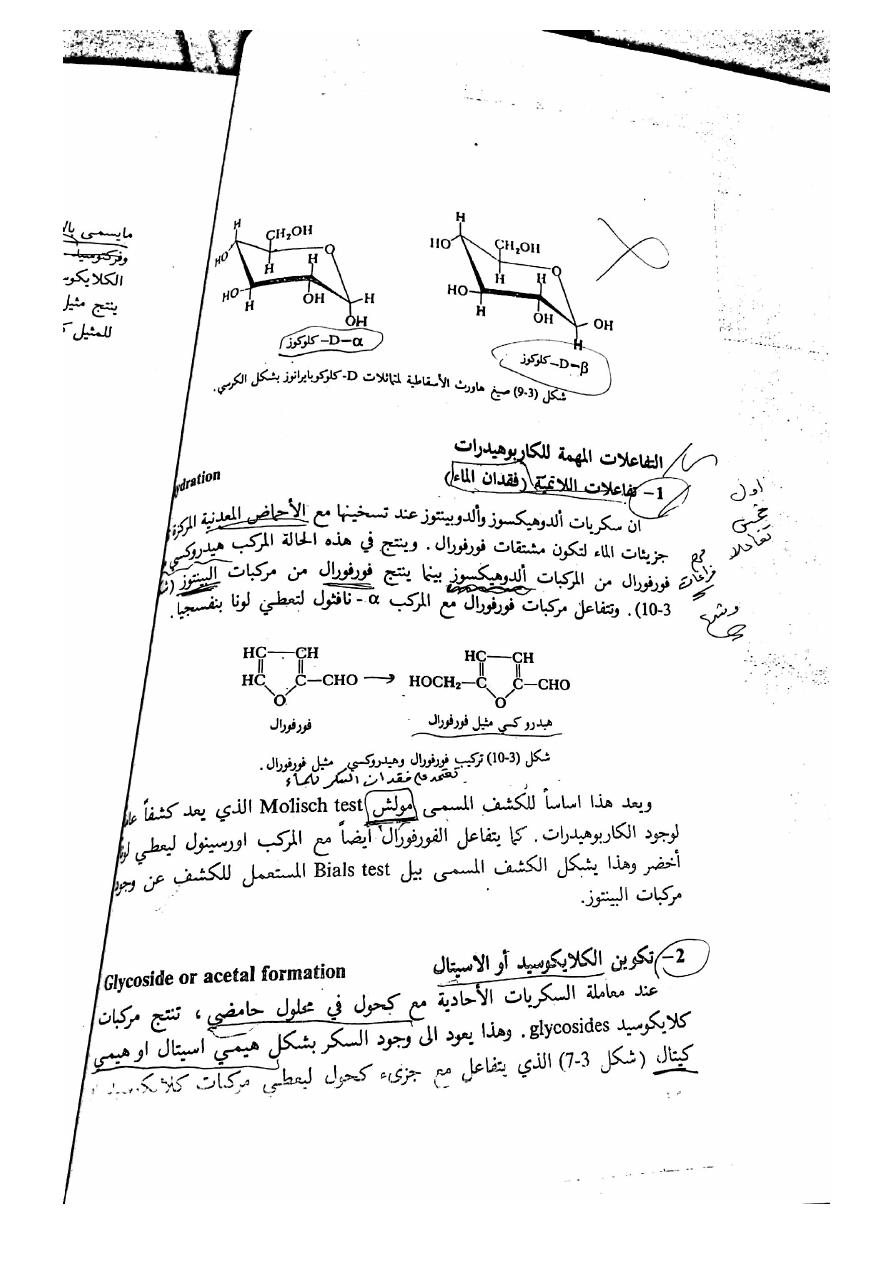 مايسمى بالا
وفركتوسيد
الكلايكوسـ
ينتج مثيل
للمثيل ك
H
CH₂OH
HO
O
H
H
HO
H
OH
H
OH
α–D–كلوكوز
H
HO
CH₂OH
O
H
H
HO
H
OH
OH
H
β–D–كلوكوز
شكل (3-9) صيغ هاورث الأسقاطية لمتماثلات D-كلوكوبايرانوز بشكل الكرسي.
التفاعلات المهمة للكاربوهيدرات
1– تفاعلات اللاتمية (فقدان الماء) ydration
ان سكريات ألدوهيكسوز وألدوبينتوز عند تسخينها مع الأحماض المعدنية المركزة
جزيئات الماء لتكون مشتقات فورفورال . وينتج في هذه الحالة المركب هيدروكسي
فورفورال من المركبات ألدوهيكسوز بينما ينتج فورفورال من مركبات البينتوز (شـ
3-10). وتتفاعل مركبات فورفورال مع المركب α - نافثول لتعطي لونا بنفسجيا.
اول
خمس
تفاعلات
مع
فراغات
HC—CH
HC C—CHO
O
فورفورال
HC—CH
HOCH₂—C C—CHO
O
هيدروكسي مثيل فورفورال
شكل (3-10) تركيب فورفورال وهيدروكسي مثيل فورفورال .
تعتمد على فقدان السكر للماء
ويعد هذا اساساً للكشف المسمى مولش Molisch test الذي يعد كشفاً عا
لوجود الكاربوهيدرات . كما يتفاعل الفورفورال أيضاً مع المركب اورسينول ليعطي لونا
أخضر وهذا يشكل الكشف المسمى بيل Bials test المستعمل للكشف عن وجود
مركبات البينتوز.
2– تكوين الكلايكوسيد أو الاسيتال Glycoside or acetal formation
عند معاملة السكريات الأحادية مع كحول في محلول حامضي ، تنتج مركبات
كلايكوسيد glycosides . وهذا يعود الى وجود السكر بشكل هيمي اسيتال او هيمي
كيتال (شكل 3-7) الذي يتفاعل مع جزيء كحول ليعطي مركبات كلايكوسيد